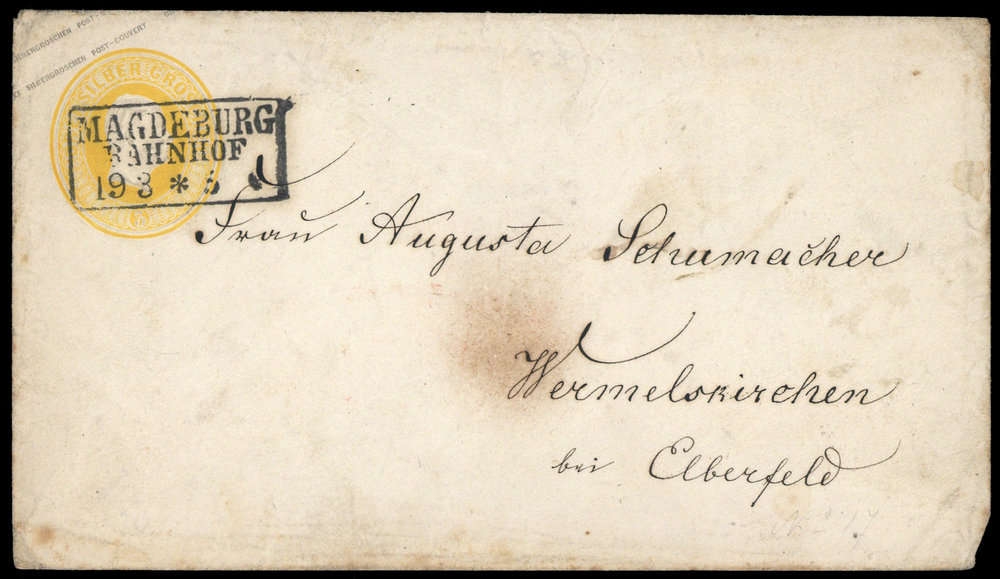 SILBERGROSCHEN POST-COUVERT
SILBERGROSCHEN POST-COUVERT
SILBER GROS
MAGDEBURG
BAHNHOF
19 3 * 5
Frau Augusta Schumacher
Wermelskirchen
bei Elberfeld